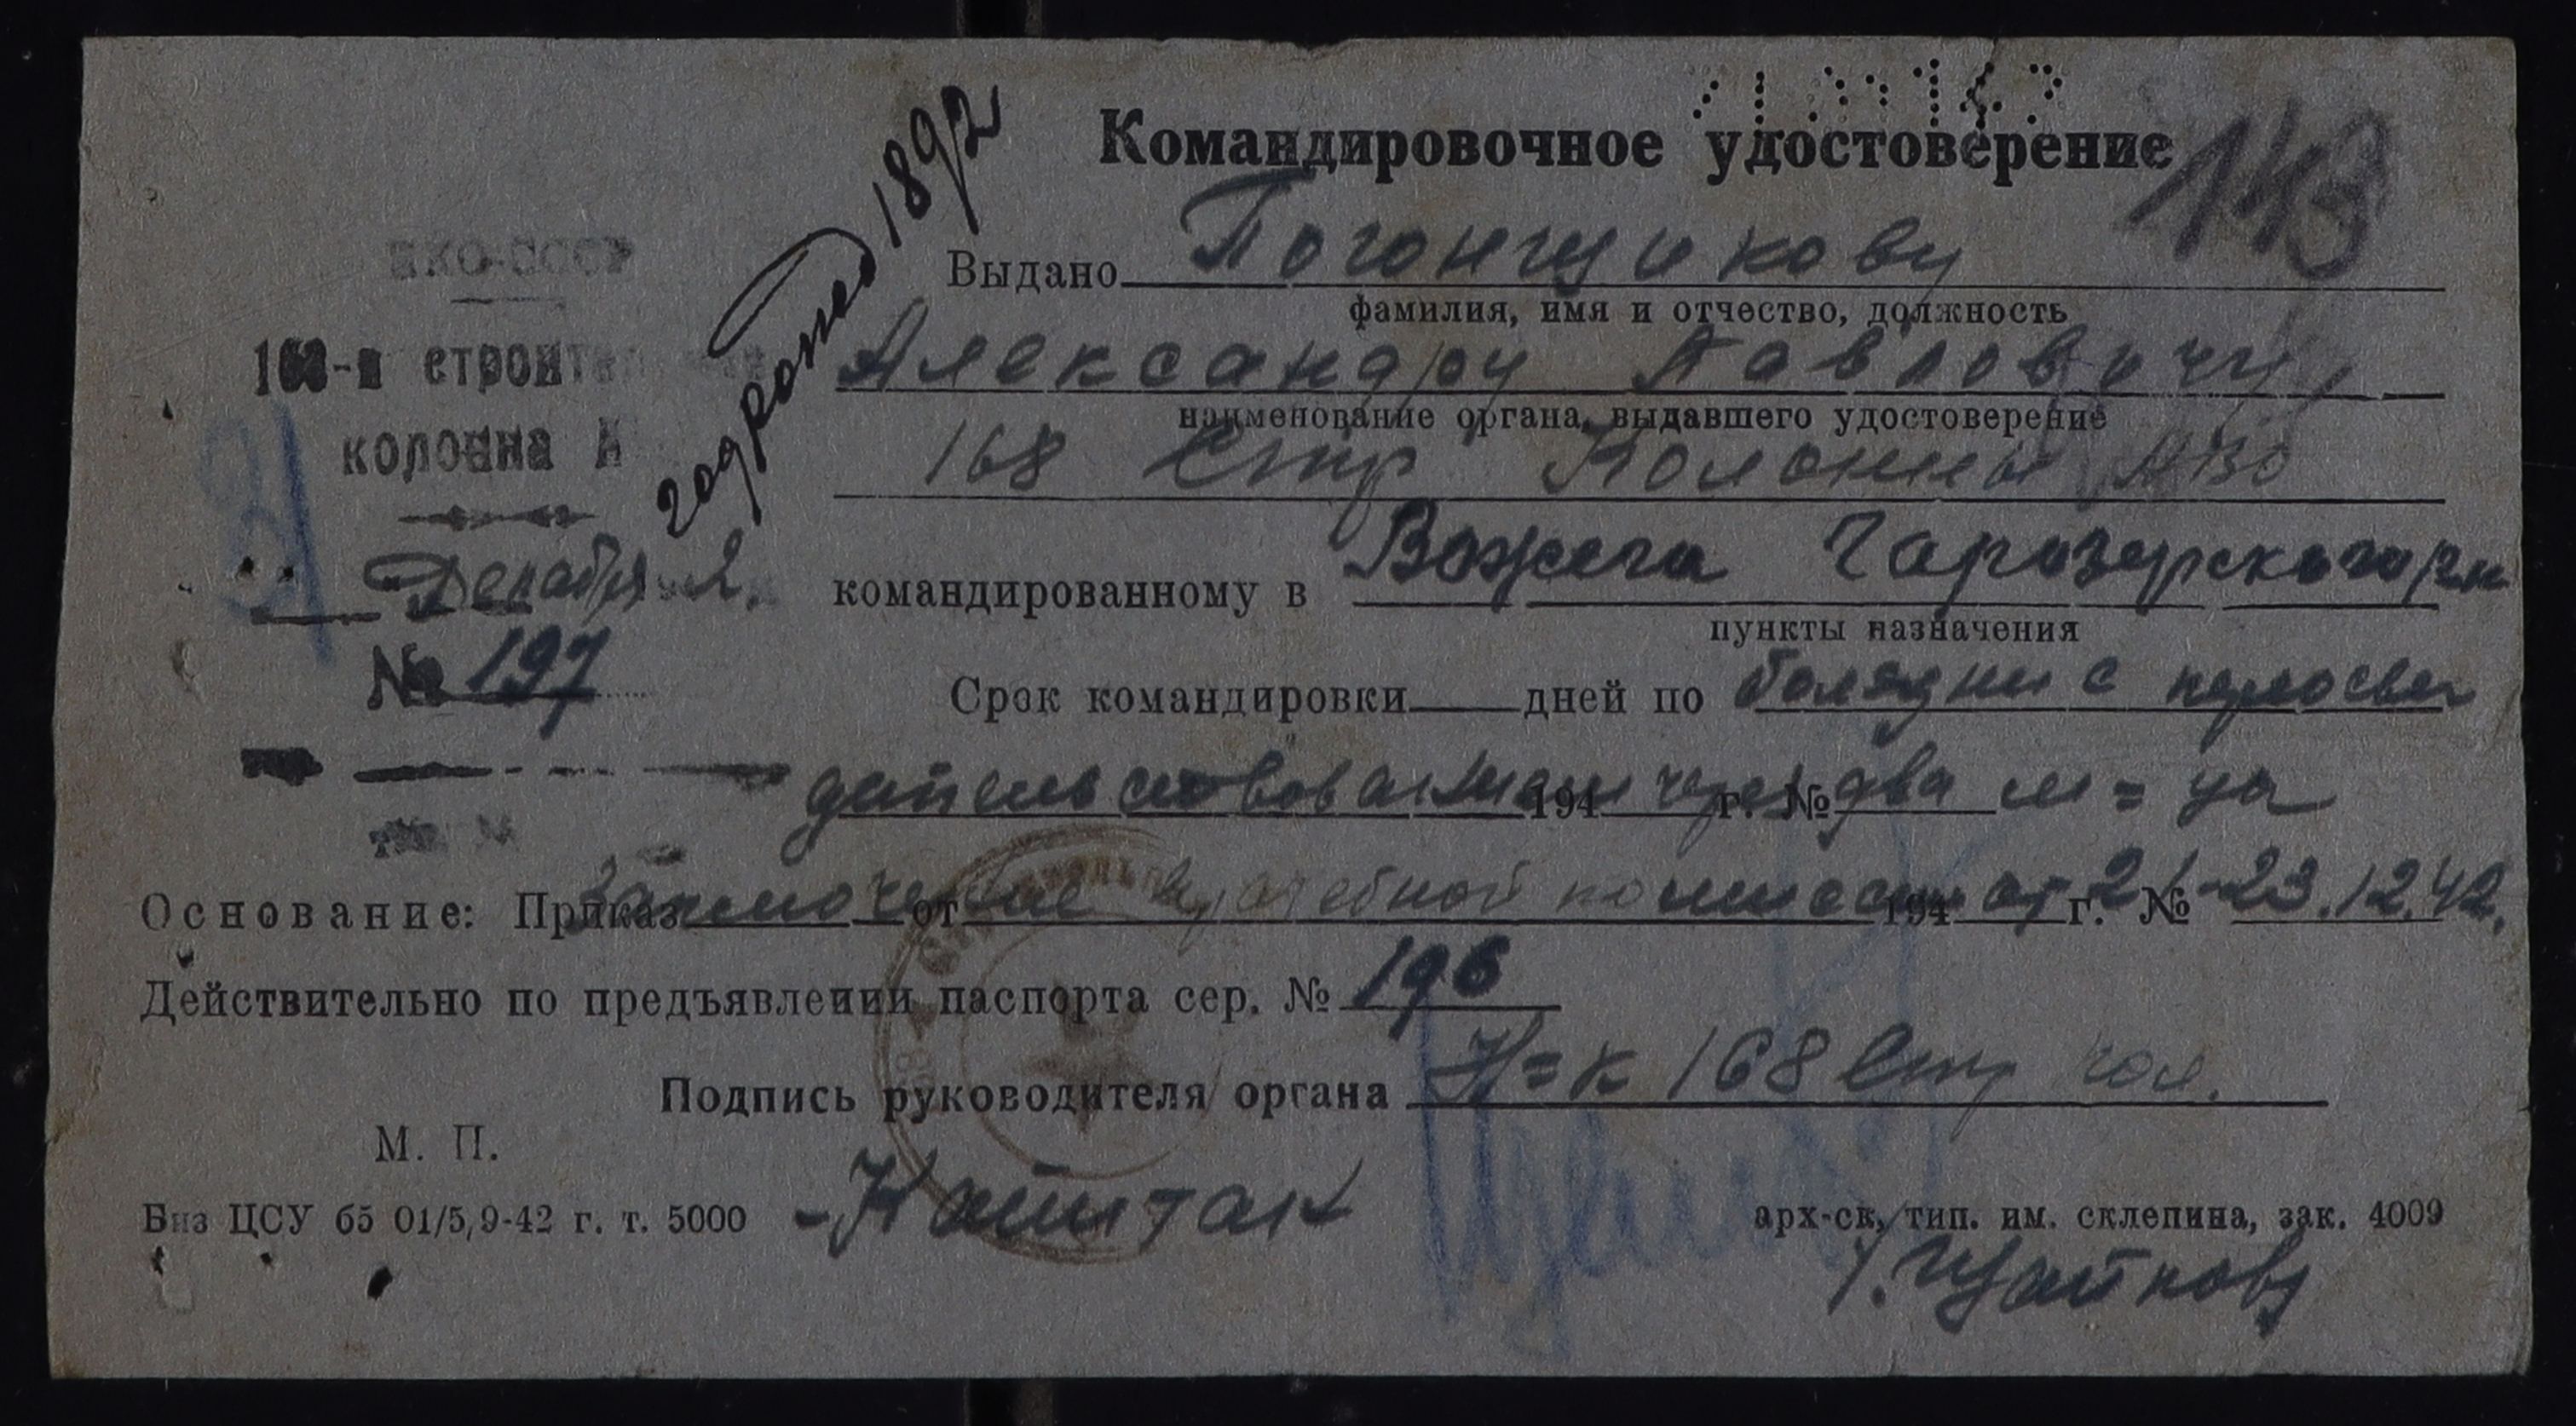 Командировочное удостоверение
143
НКО-СССР
168-я строит
колонна
Декабря 2
№ 197
год рожд 1892
Выдано Погонщикову
фамилия, имя и отчество, должность
Александру Павловичу,
наименование органа, выдавшего удостоверение
168 Стр Колонны
командированному в Вожега Чарозерского р-н
пункты назначения
Срок командировки дней по болезни с переосви
детельствованием 194 через г. № два м=ца
Основание: Приказ Заключение от врачебной комиссии 194 от г. № 21-23.12.42.
Действительно по предъявлении паспорта сер. № 196
Подпись руководителя органа Н=к 168 Стр кол.
М. П.
-Капитан
Биз ЦСУ б5 01/5,9-42 г. т. 5000
арх-ск, тип. им. склепина, зак. 4009